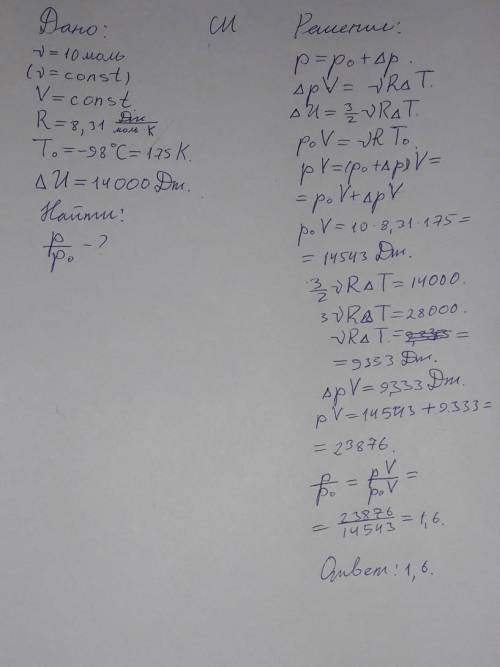 Дано:
ν = 10 моль
(ν = const)
V = const
R = 8,31 Дж/моль К
T₀ = -98°C = 175 К.
ΔU = 14000 Дж.
Найти:
p/p₀ - ?
СИ
Решение:
p = p₀ + Δp.
ΔpV = νRΔT.
ΔU = 3/2 νRΔT.
p₀V = νRT₀.
pV = (p₀ + Δp)V =
= p₀V + ΔpV
p₀V = 10 · 8,31 · 175 =
= 14543 Дж.
3/2 νRΔT = 14000.
3νRΔT = 28000.
νRΔT. = =
= 9353 Дж.
ΔpV = 9333 Дж.
pV = 14543 + 9333 =
= 23876.
p/p₀ = pV/p₀V =
= 23876/14543 = 1,6.
Ответ: 1,6.